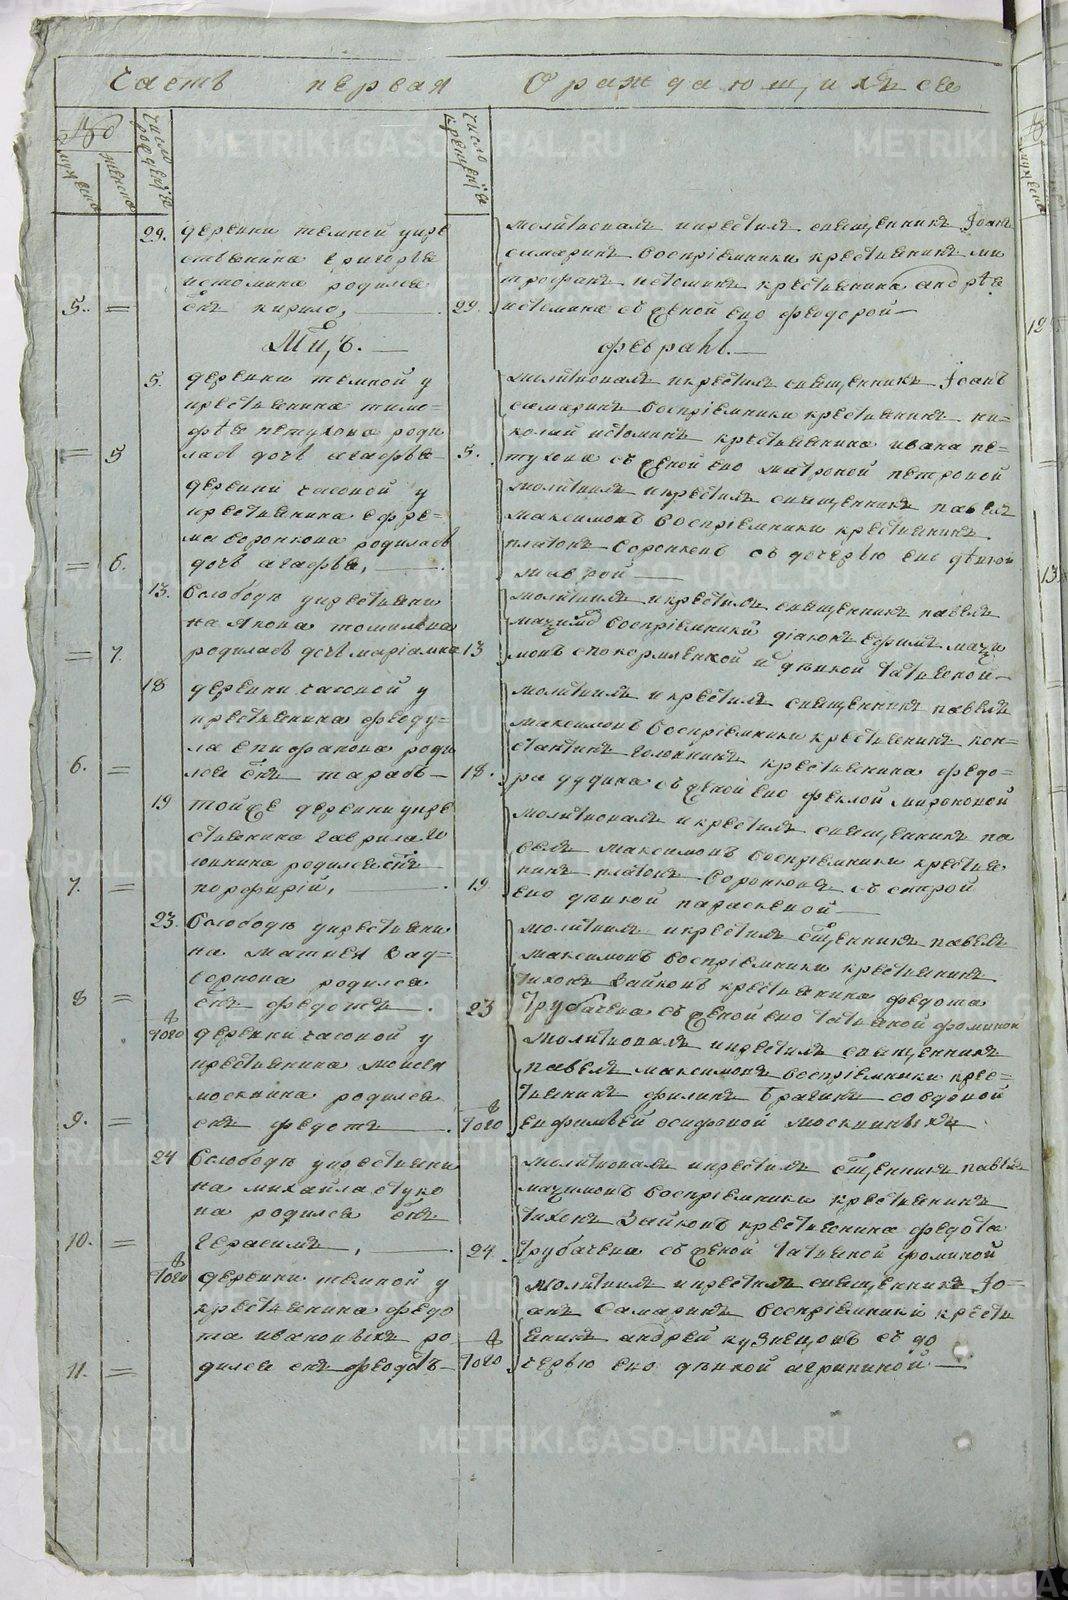 Часть первая О раждающихъ ся
№
мужеска
женска
число рожденiя
число крещенiя
29. деревни темной у кре
стьянина Григорья
истомина родился
5. = снъ кирило,
молитвовалъ и крестилъ священникъ Iоанъ
самаринъ воспрiемники крестьянинъ ми
трофанъ истоминъ крестьянина андрѣя
29. истомина съ женой ево федорой
Мцъ. февраль.
5. деревни темной у
крестьянина тимо=
фѣя петухова роди
= 5 лась дочь агафья
молитвовалъ и крестилъ священникъ Iоанъ
самаринъ воспрiемники крестьянинъ ни=
колай истоминъ крестьянина ивана пе=
5. тухова съ женой ево матроной петровой
деревни часовой у
крестьянина ефре=
ма воронкова родилась
= 6. дочь агафья,
молитвилъ и крестилъ священникъ павелъ
максимовъ воспрiемники крестьянинъ
платонъ воронковъ съ дочерью ево дѣвкой
маврой
13. Слободы у крестьяни
на Якова томилова
= 7. родилась дочь марiамна 13
молитвилъ и крестилъ священникъ павелъ
воспрiемники дiаконъ Ефимъ макси
мовъ и дѣвкой татьяной
18 деревни часовой у
крестьянина феду=
ла епифанова роди
6. = лся снъ тарасъ 18.
молитвилъ и крестилъ священникъ павелъ
максимовъ воспрiемники крестьянинъ кон=
стантинъ крестьянина федо=
ра дудина съ женой ево феклой мироновой
19 той же деревни у кре
стьянина гаврила
родился снъ
7. = порфирiй, 19
молитвовалъ и крестилъ священникъ па
велъ максимовъ воспрiемники крестья
нинъ платонъ воронковъ съ сестрой
ево дѣвкой параскевой
23. Слободы у крестьяни
на матвея
родился
8 = снъ федотъ. 23
молитвилъ и крестилъ сщенникъ павелъ
максимовъ воспрiемники крестьянинъ
тихонъ зайковъ крестьянина федота
трубачева съ женой ево татьяной фоминой
деревни часовой у
крестьянина моисея
москвина родился
9. = снъ федотъ
молитвовалъ и крестилъ священникъ
павелъ максимовъ воспрiемники крес=
тьянинъ филипъ брагинъ со вдовой
ефимьей осиповой москвиныхъ
24 Слободы у крестьяни
на михайла стуко
ва родился снъ
10. = Герасимъ, 24.
молитвовалъ и крестилъ сщенникъ павелъ
воспрiемники крестьянинъ
тихонъ Зайковъ крестьянина федота
трубачева съ женой татьяной фоминой
деревни темной у
крестьянина федо
та ивановыхъ ро
11. = дился снъ феодотъ
молитвилъ и крестилъ священникъ Iо=
анъ Самаринъ воспрiемники кресть
янинъ андрей кузнецовъ съ до
черью ево дѣвкой агрипиной
METRIKI.GASO-URAL.RU